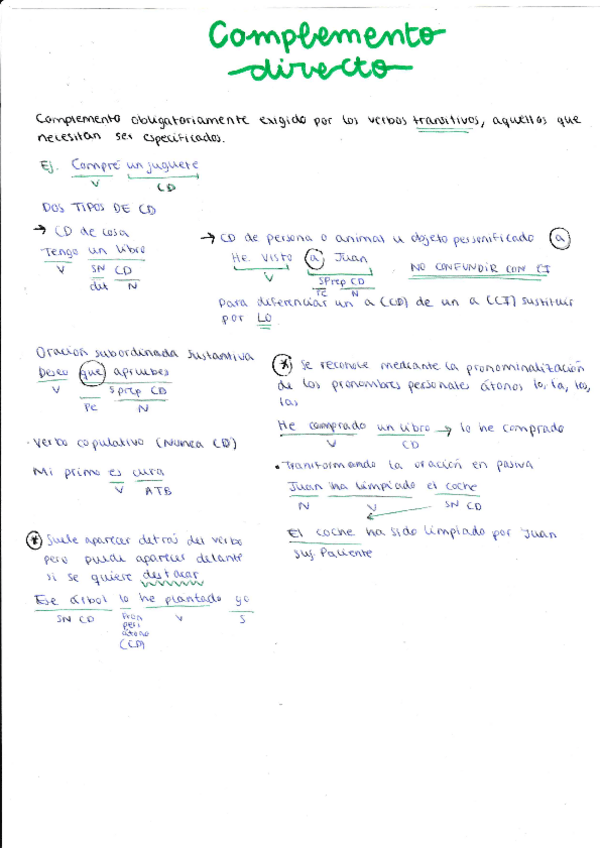 Complemento
directo
Complemento obligatoriamente exigido por los verbos transitivos, aquellos que
necesitan ser especificados.
Ej. Compré un juguete
V CD
DOS TIPOS DE CD
→ CD de cosa
Tengo un libro
V SN CD
det N
→ CD de persona o animal u objeto personificado a
He visto a Juan
V SPrep CD
N
NO CONFUNDIR CON CI
Para diferenciar un a (CD) de un a (CI) sustituir
por LO
Oración subordinada sustantiva
Deseo que apruebes
V Sprep CD
N
· Verbo copulativo (Nunca CD)
Mi primo es cura
V ATB
* Suele aparecer detrás del verbo
pero puede aparecer delante
si se quiere destacar
Ese árbol lo he plantado yo
SN CD Pron V S
pers
átono
(CD)
* Se reconoce mediante la pronominalización
de los pronombres personales átonos lo, la, los,
las
He comprado un libro → lo he comprado
V CD
· Transformando la oración en pasiva
Juan ha limpiado el coche
N V SN CD
El coche ha sido limpiado por Juan
Suj. Paciente